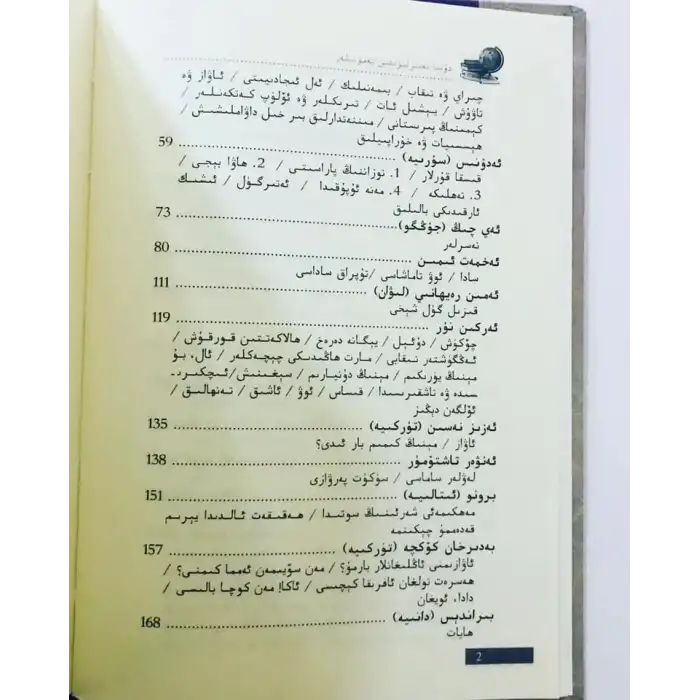 دۇنيا نەسىرلىرىدىن نەمۇنىلەر
چىراي ۋە نىقاب / بىمەنىلىك / ئەل ئىجادىيىتى / ئاۋاز ۋە
تاۋۇش / يېشىل ئات / تىرىكلەر ۋە ئۆلۈپ كەتكەنلەر /
كېمىنىڭ پىرىستانى / مىننەتدارلىق بىر خىل داۋاملىشىش /
ھېسسىيات ۋە خۇراپىيلىق
ئەدۇنىس (سۇرىيە) ........ 59
قىسقا قۇرلار / 1. توزاننىڭ پاراسىتى / 2. ھاۋا يېجى /
3. تەھلىكە / 4. مەنە ئۇپۇقىدا / ئەتىرگۈل / ئىشىك
ئارقىدىكى بالىلىق
ئەي چىڭ (جۇڭگو) ........ 73
نەسرلەر
ئەخمەت ئىمىن ........ 80
سادا / ئوۋ تاماشاسى / تۇپراق ساداسى
ئەمىن رەيھانىي (لىۋان) ........ 111
قىزىل گۈل شېخى
ئەركىن نۇر ........ 119
چۆكۈش / دۇئېل / يىگانە دەرەخ / ھالاكەتتىن قورقۇش /
ئەڭگۈشتەر نىقابى / مارت ھاڭىدىكى چېچەكلەر / ئال، بۇ
مېنىڭ يۈرىكىم / مېنىڭ دۇنيارىم / سېغىنىش / ئىچكىرى-
سىدە ۋە تاشقىرىسىدا / قىساس / ئوۋ / ئاشىق / تەنھالىق /
ئۆلگەن دېڭىز
ئەزىز نەسىن (تۈركىيە) ........ 135
ئاۋاز / مېنىڭ كىمىم بار ئىدى؟
ئەنۋەر تاشتۆمۈر ........ 138
لەۋلەر ساماسى / سۈكۈت پەرۋازى
برونو (ئىتالىيە) ........ 151
مەھكىمەئى شەرئىنىڭ سوتىدا / ھەقىقەت ئالدىدا يېرىم
قەدەممۇ چېكىنمە
بەدىرخان كۆكچە (تۈركىيە) ........ 157
ئاۋازىمنى ئاڭلىغانلار بارمۇ؟ / مەن سۆيىمەن ئەمما كىمنى؟ /
ھەسرەت تولغان ئافرىقا كېچىسى / ئاكا! مەن كوچا بالىسى /
دادا، ئويغان
بىراندېس (دانىيە) ........ 168
ھايات
2